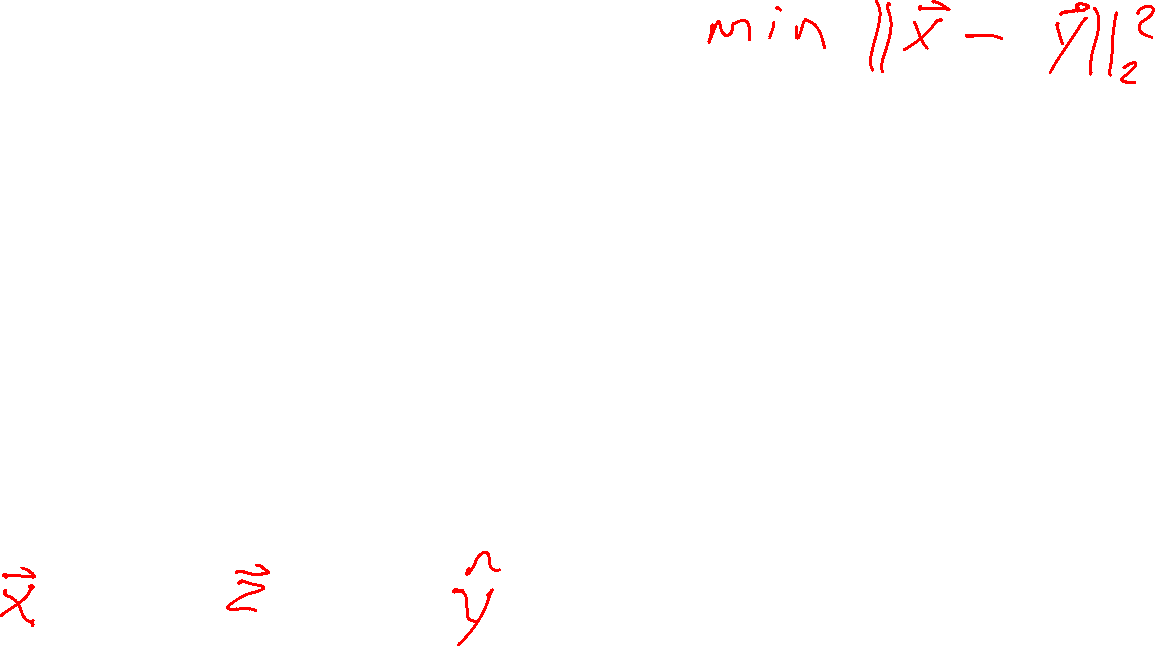 min ‖x⃗ − y⃗‖₂²
x⃗ z⃗ ŷ